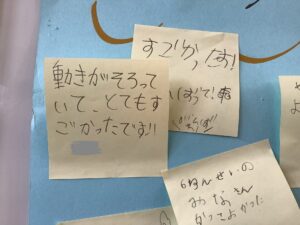 動きがそろって
いて、とてもす
ごかったです!!
すごかったす!
6ねんせいの
みなさん
かっこよかった